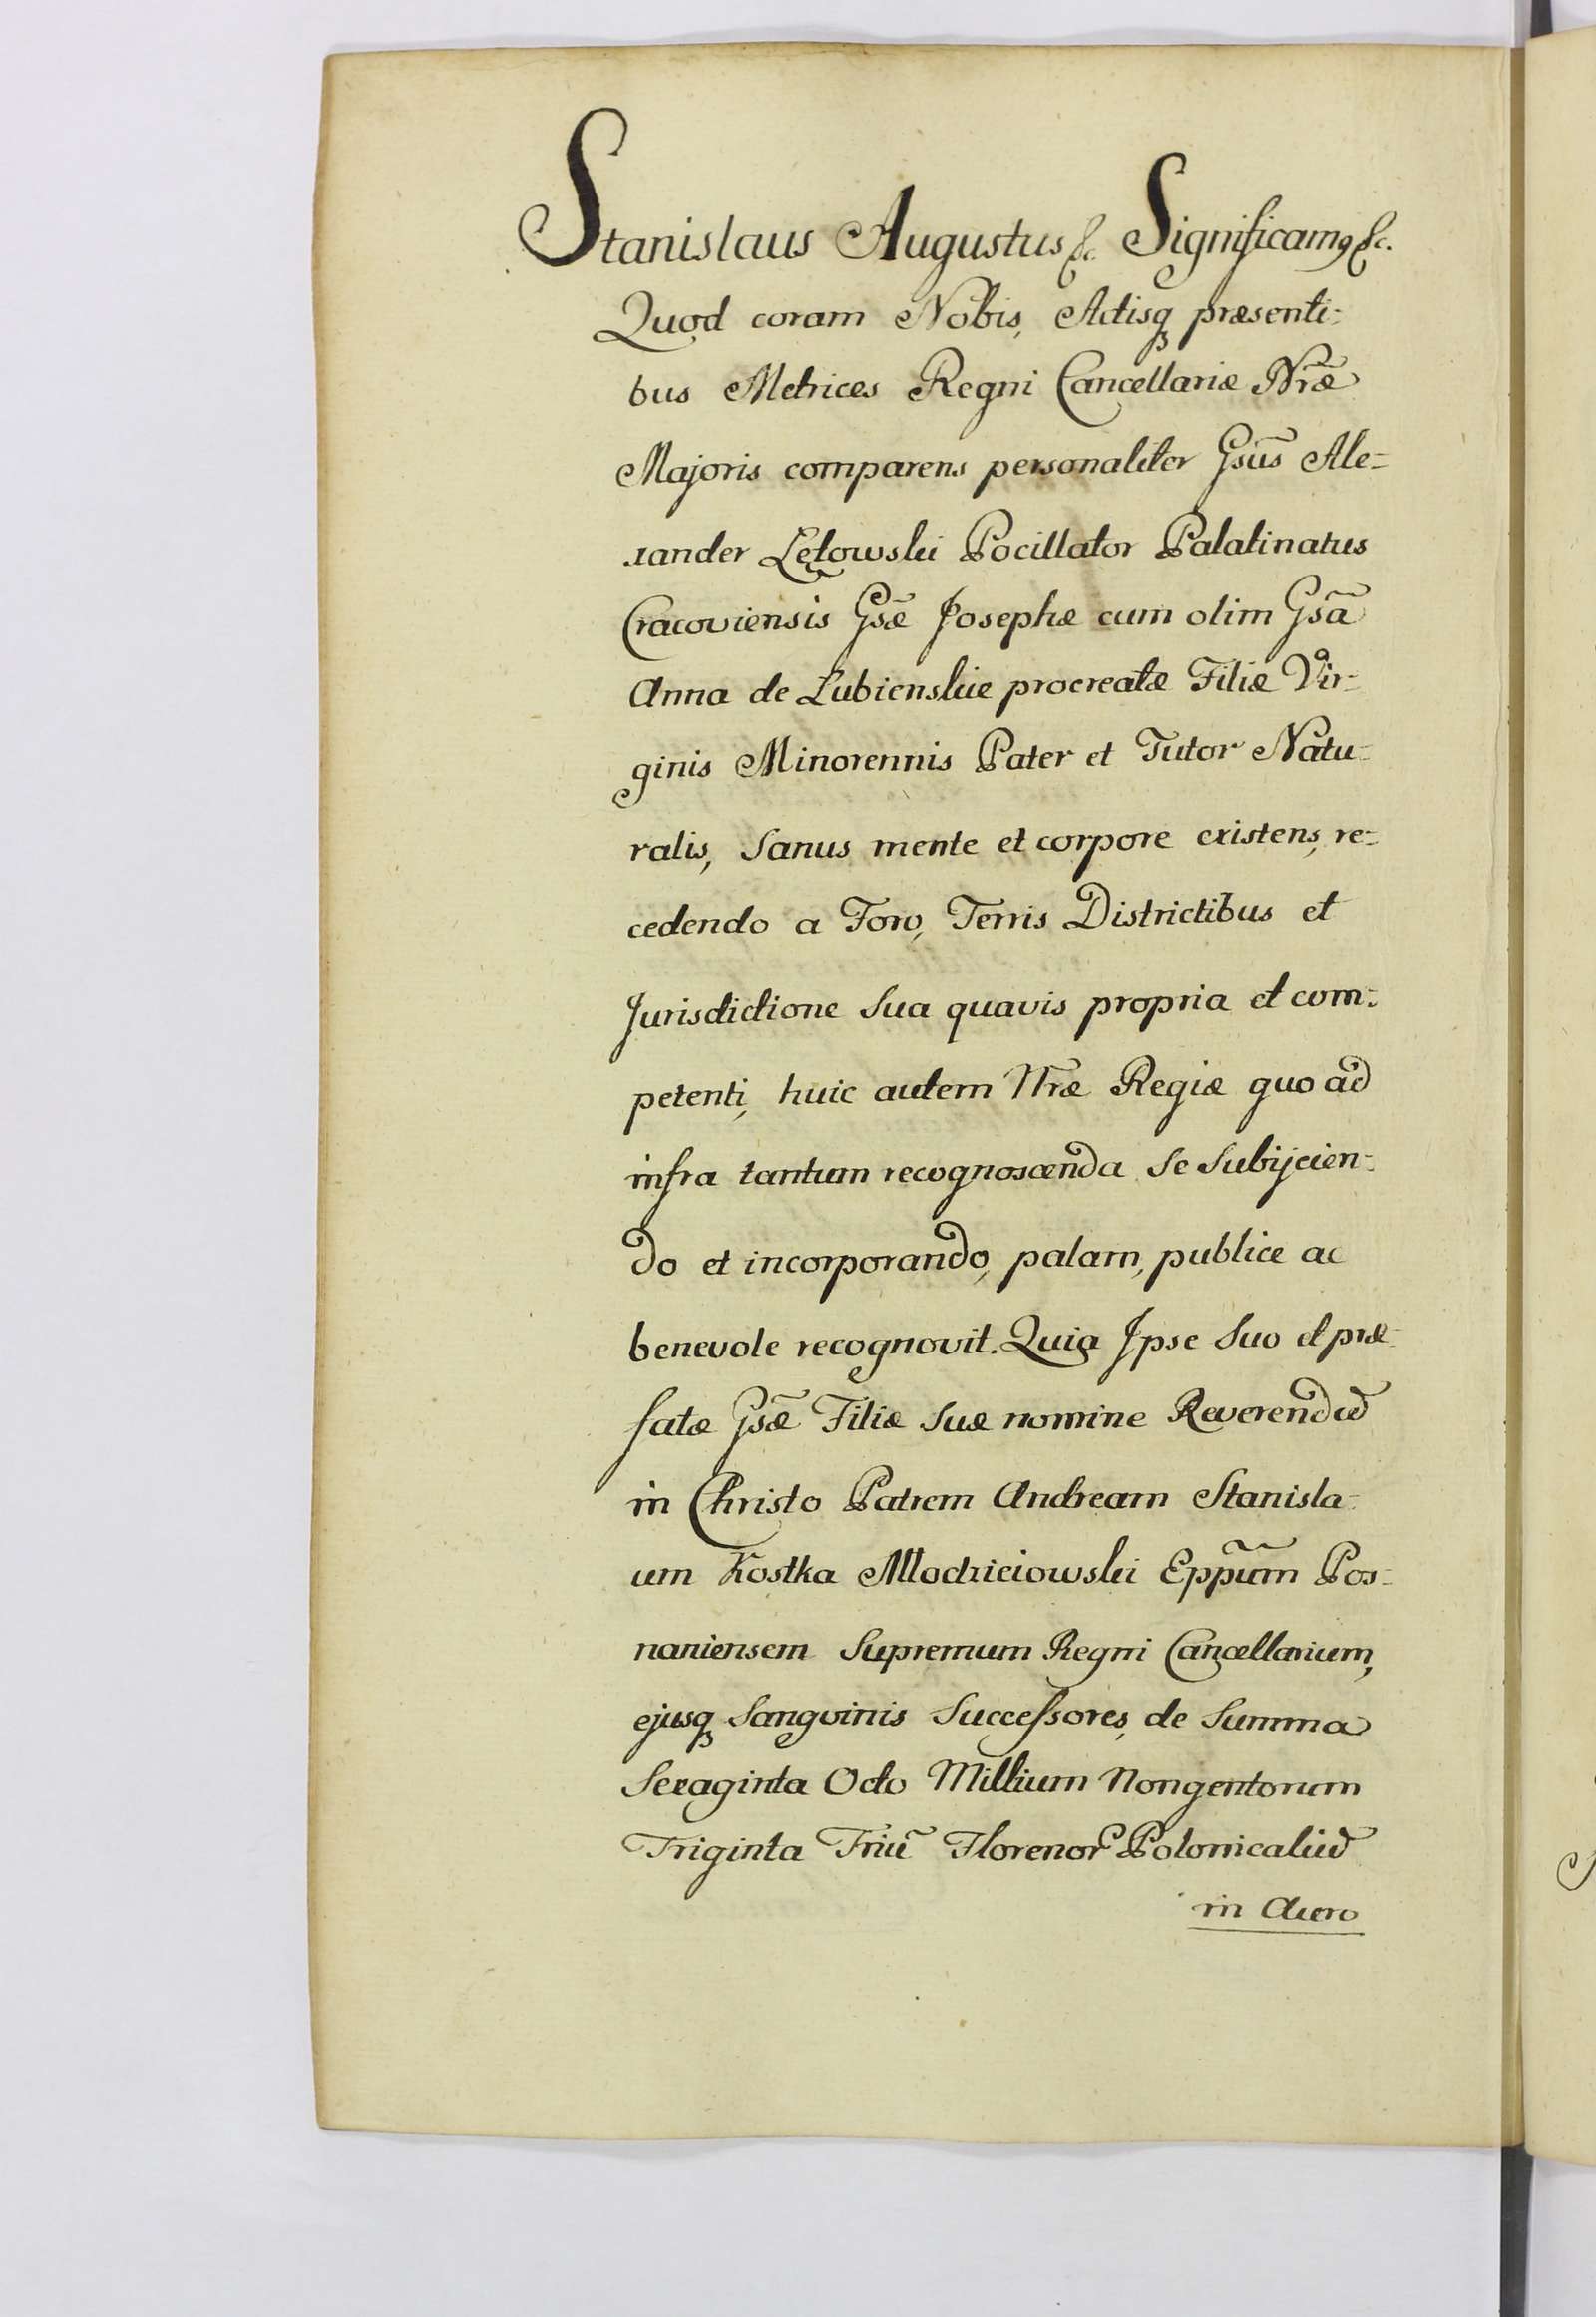 Stanislaus Augustus &c. Significamꝯ &c.
Quod coram Nobis, Actisqꝫ præsenti:
bus Metrices Regni Cancellariæ Nr̃æ
Majoris comparens personaliter Gsũs Ale:
xander Łętowski Pocillator Palatinatus
Cracoviensis Gsæ̃ Josephæ cum olim Gsã
Anna de Łubienskie procreatæ Filiæ Vir:
ginis Minorennis Pater et Tutor Natu:
ralis, Sanus mente et corpore existens, re:
cedendo a Foro, Terris Districtibus et
Jurisdictione Sua quavis propria et com:
petenti, huic autem Nr̃æ Regiæ quo ad
infra tantum recognoscenda Se Subijcien:
do et incorporando, palam, publice ac
benevole recognovit. Quia Ipse Suo et præ:
fatæ Gsæ̃ Filiæ Suæ nomine Reverendũ
in Christo Patrem Andream Stanisla:
um Kostka Młodzieiowski Epp̃um Pos:
naniensem Supremum Regni Cancellarium,
ejusqꝫ Sangvinis Successores, de Summa
Sexaginta Octo Millium Nongentorum
Triginta Triũ Florenor̃ Polonicaliũ
in Auro